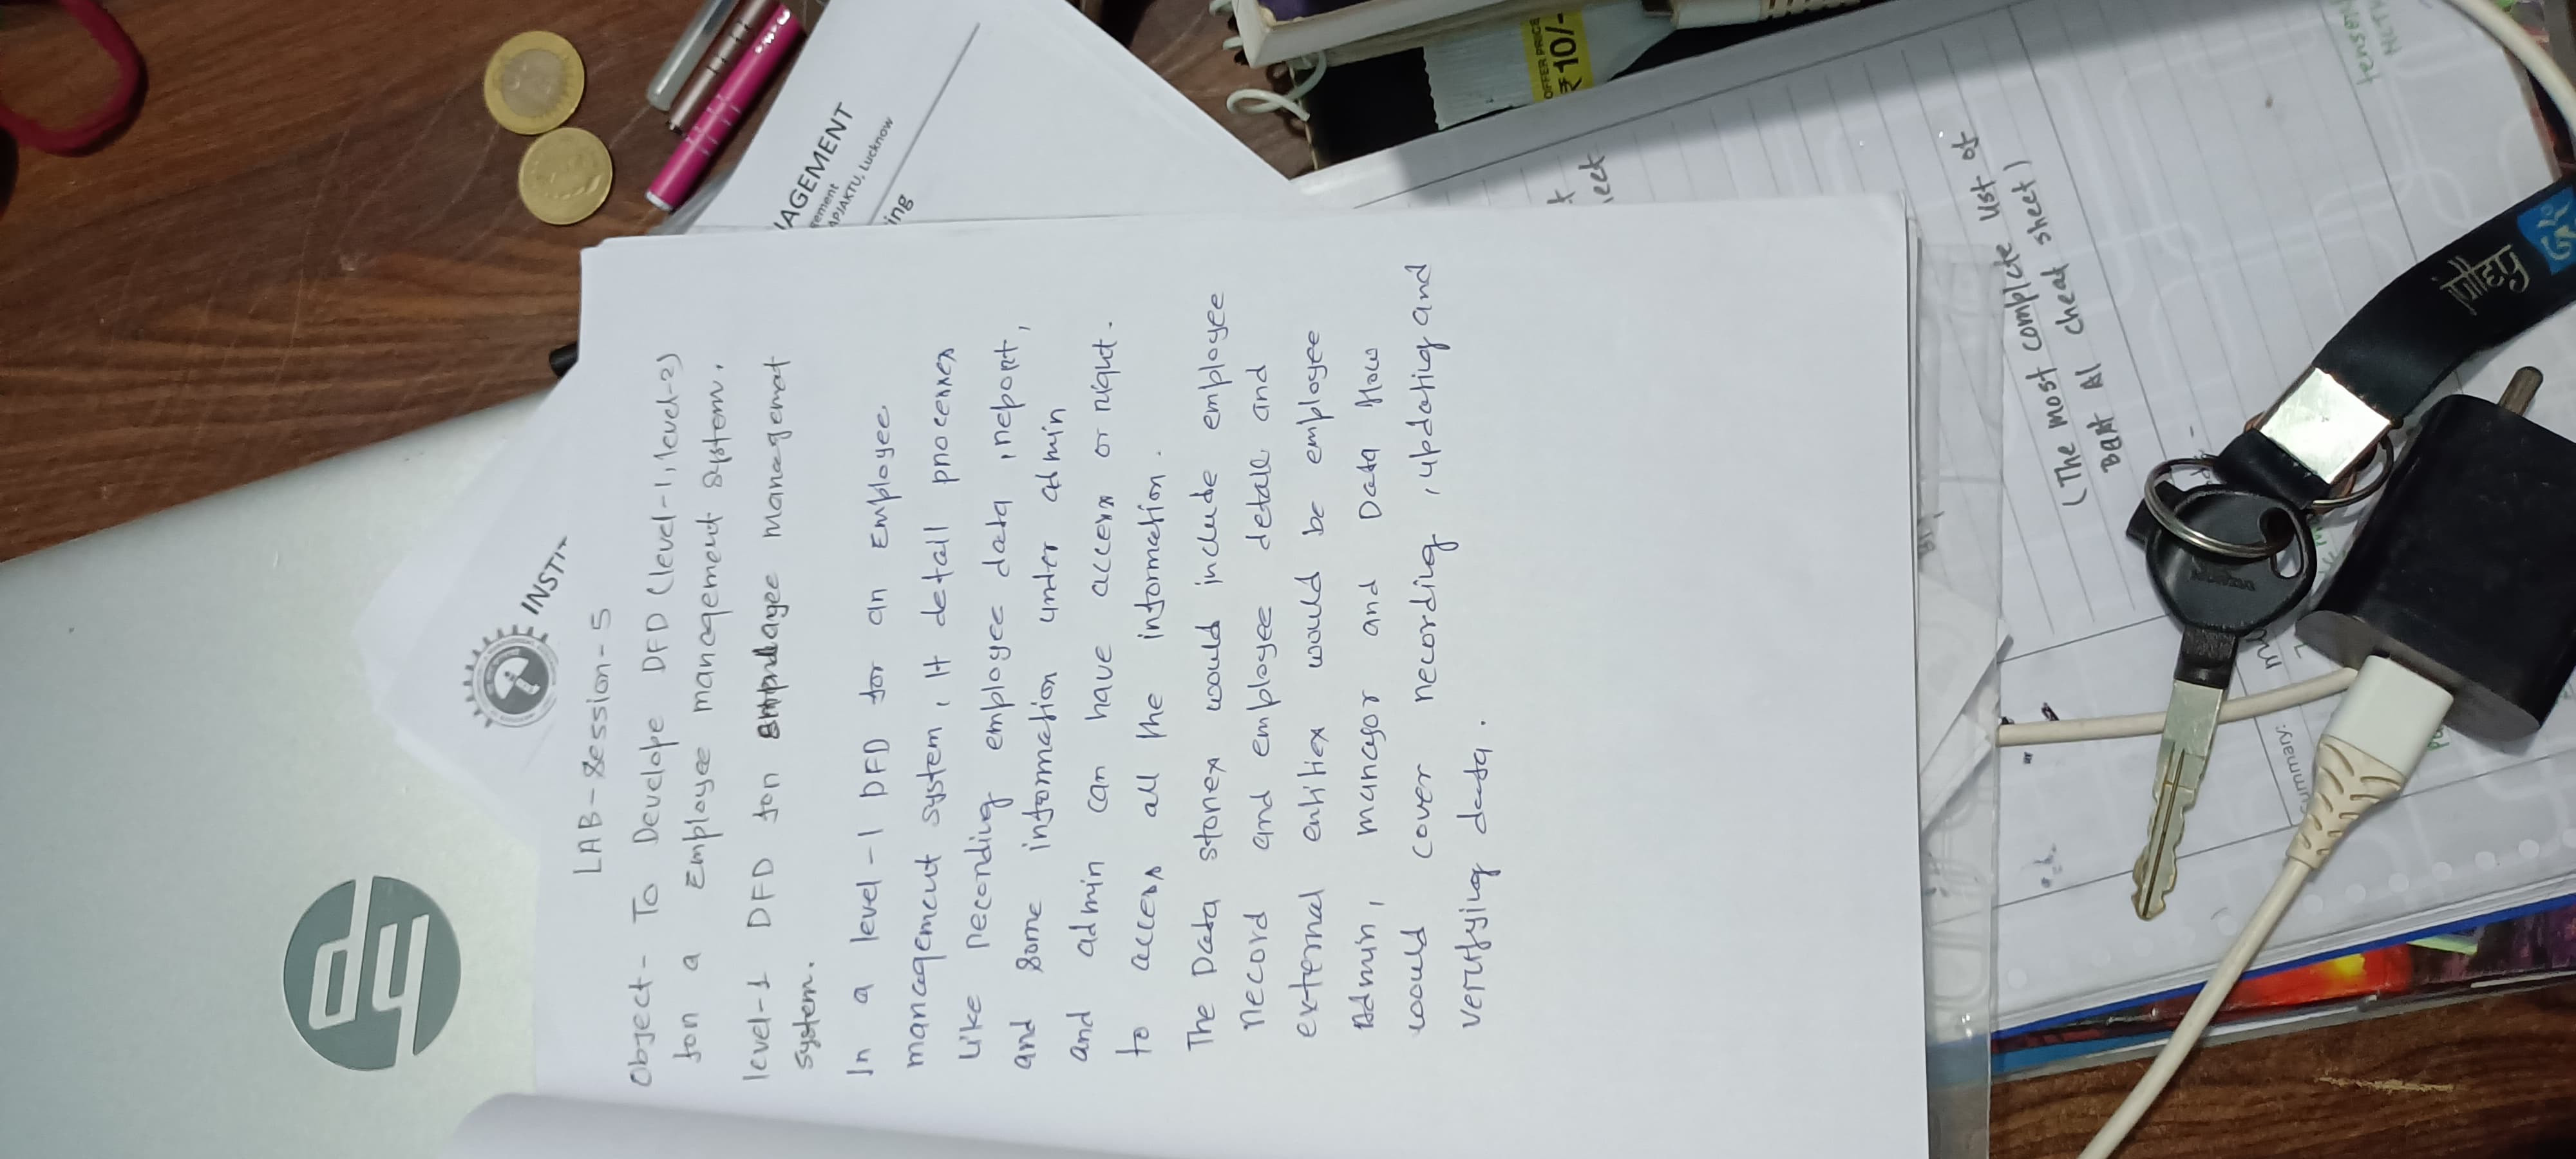 LAB-Session-5
Object- To Develope DFD (level-1, level-2)
for a Employee management system.
level-1 DFD for employee management
system.
In a level-1 DFD for an Employee
management system, It detail processes
like recording employee data, report,
and some information under admin
and admin can have access or right.
to access all the information.
The Data stores would include employee
record and employee detail and
external entities would be employee
Admin, manager and Data flow
would cover recording, updating and
verifying data.
hp
INSTI
AGEMENT
APJAKTU, Lucknow
ing
OFFER PRICE
₹10/-
(The most complete list of
Best AI cheat sheet)
Summary: